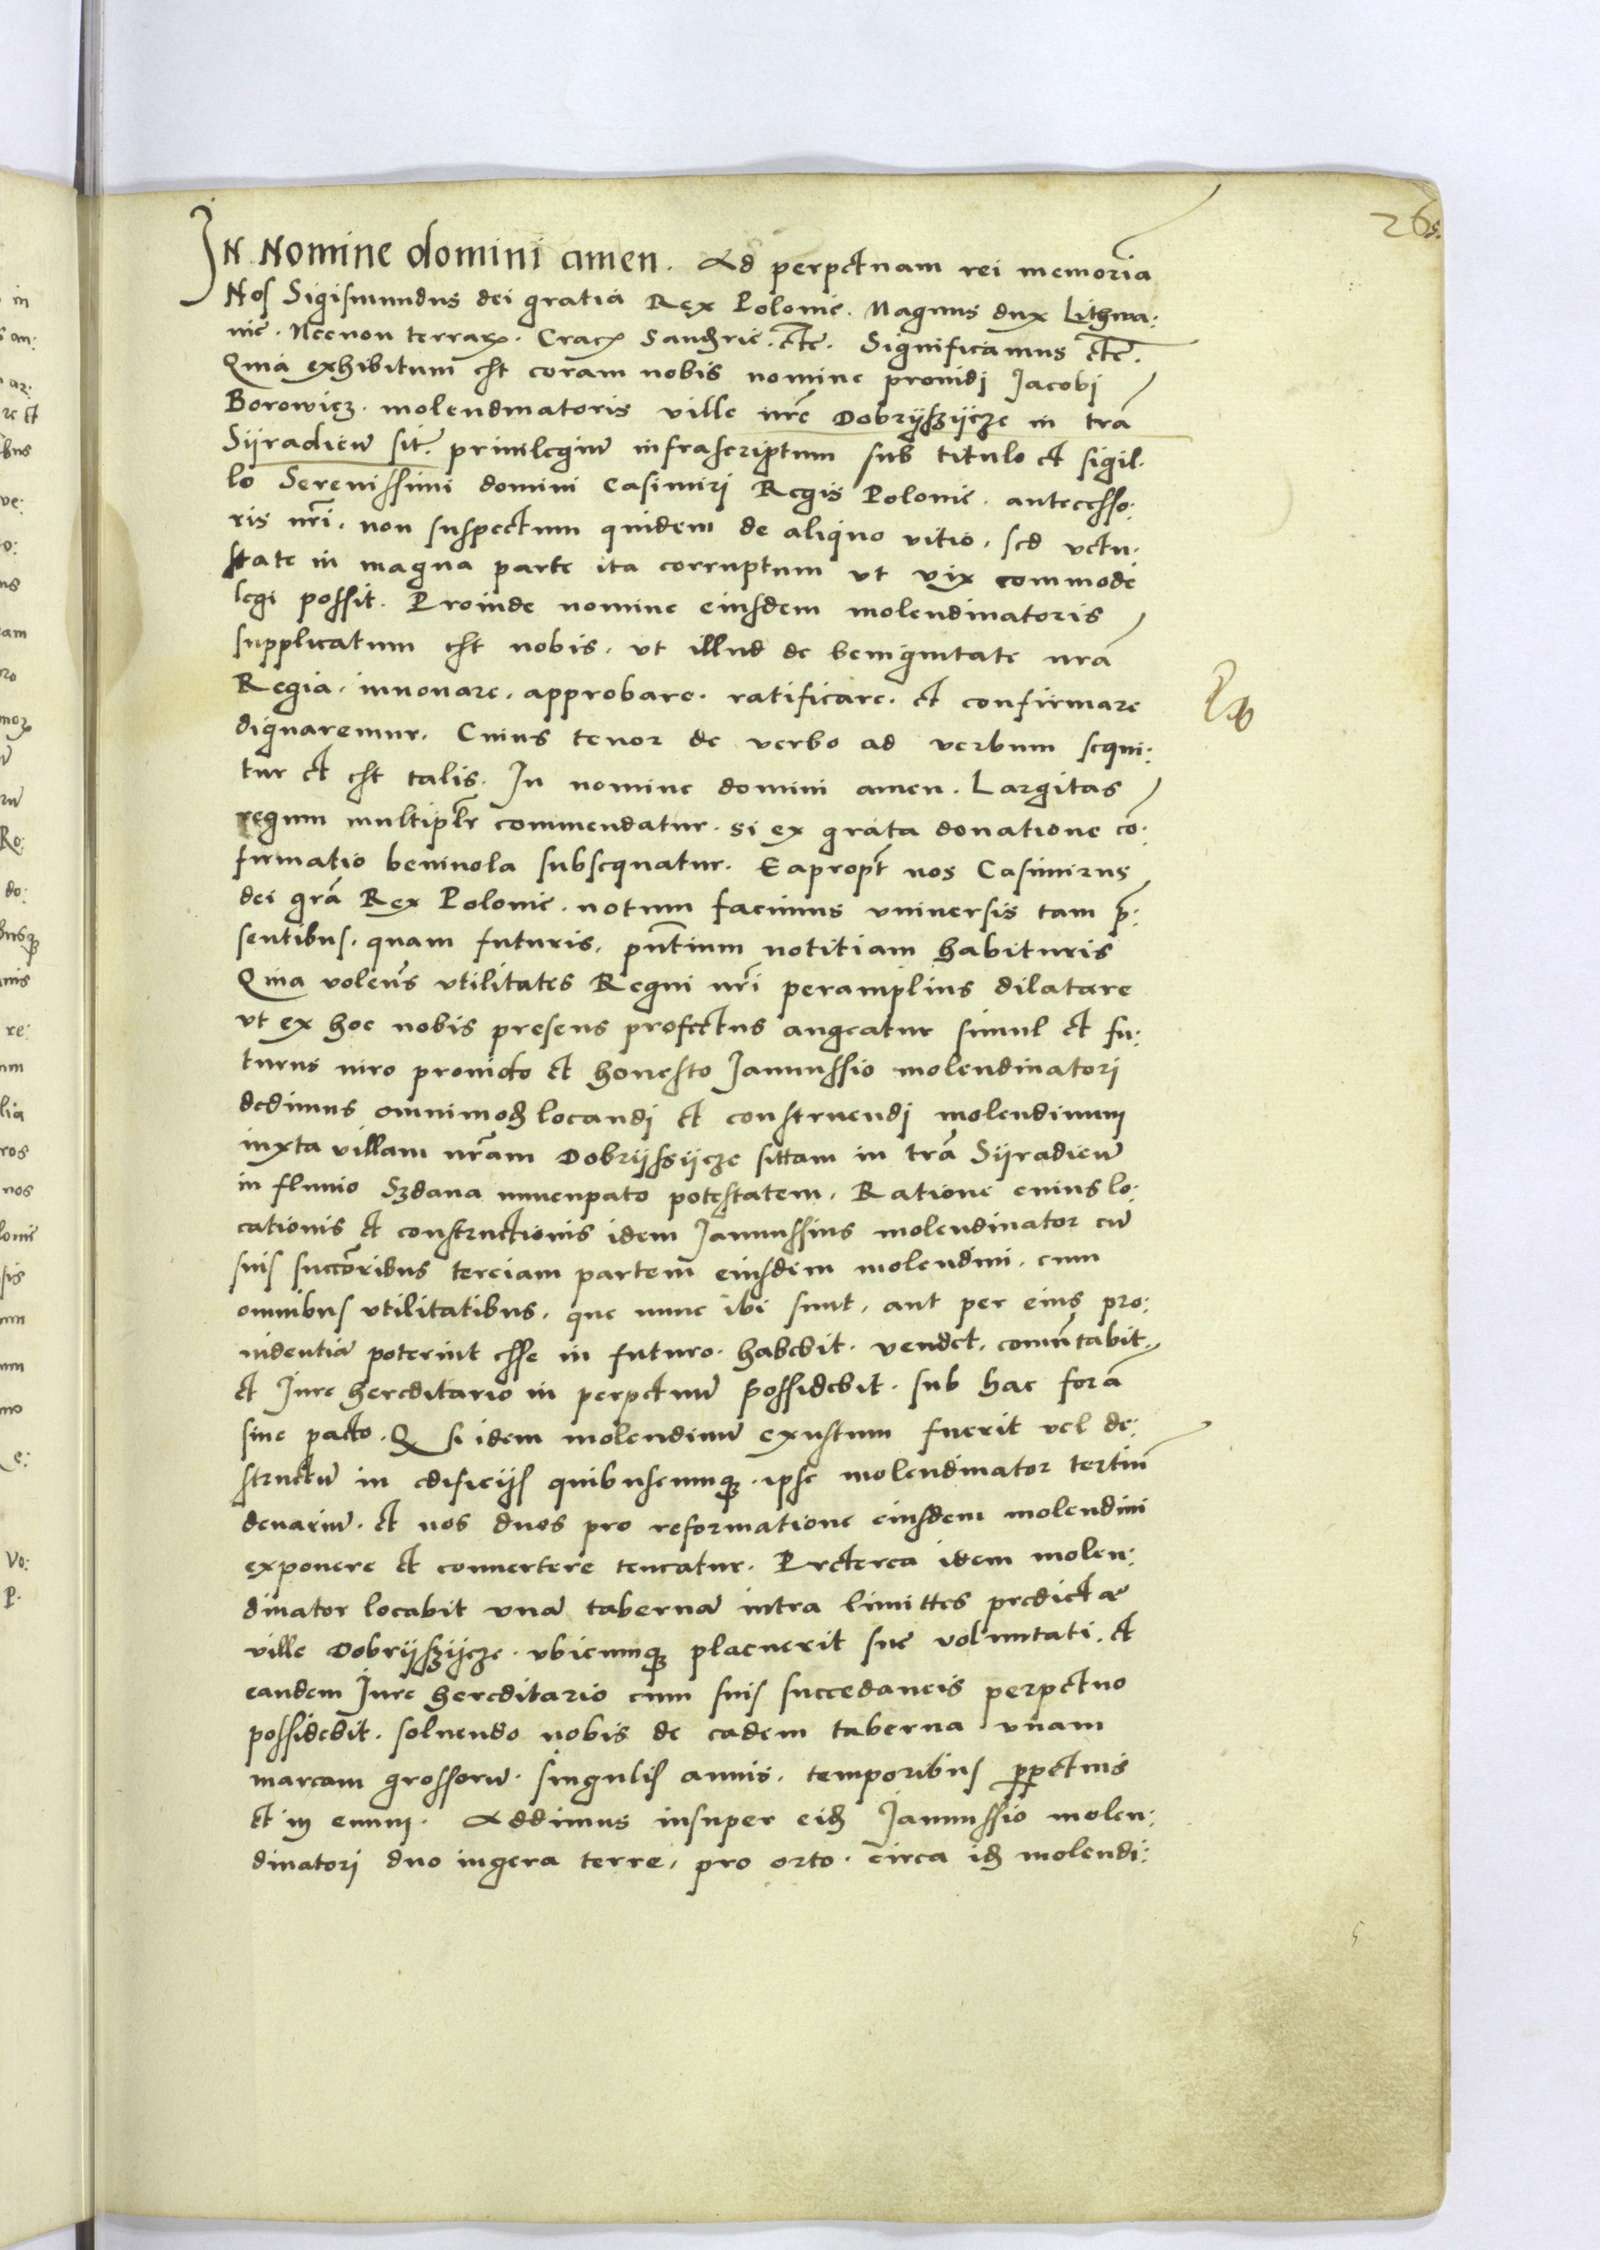 26s.
IN Nomine domini amen. Ad perpetuam rei memoriā
Nos Sigismundus dei gratia Rex Polonie. Magnus dux Lithwa:
nie. Necnon terrarꝝ. Cracꝝ Sandrie. etc̄. Significamus etc̄.
Quia exhibitum est coram nobis nomine prouidj Jacobj
Borowicz. molendinatoris ville nr̄e Dobrÿszÿcze in tr̄a
Sÿradien̄ sit. priuilegiū infrascriptum sub titulo et sigil:
lo Serenissimi domini Casimirj Regis Polonie. antecesso:
ris nr̄i. non suspectum quidem de aliquo vitio. sed vetu:
state in magna parte ita corruptum vt vix commode
legi possit. Proinde nomine eiusdem molendinatoris
supplicatum est nobis. vt illud de benignitate nr̄a
Regia. innouare. approbare. ratificare. et confirmare
dignaremur. Cuius tenor de verbo ad verbum sequi:
tur et est talis. In nomine domini amen. Largitas
regum multiplr̄ commendatur. si ex grata donatione cō:
firmatio beniuola subsequatur. Eapropt̄ nos Casimirus
dei grā Rex Polonie. notum facimus vniuersis tam p̄:
sentibus. quam futuris. pn̄tium notitiam habituris
Quia volens vtilitates Regni nr̄i peramplius dilatare
vt ex hoc nobis presens profectus augeatur simul et fu:
turus viro prouido et honesto Janussio molendinatori
dedimus omnimod̄ locandj et construendj molendinum
iuxta villam nr̄am Dobrÿszÿcze sittam in tr̄a Sÿradien̄
in fluuio Szdana nuncupato potestatem. Ratione cuius lo:
cationis et constructionis idem Janussius molendinator cū
suis succōribus terciam partem eiusdem molendini. cum
omnibus vtilitatibus. que nunc ibi sunt. aut per eius pro:
uidentiā poterint esse in futuro. habebit. vendet. comūtabit.
et Jure hereditario in perpetuū possidebit. sub hac forā
siue pacto. Q si idem molendinū exustum fuerit vel de:
structū in edificijs quibuscumqꝫ. ipse molendinator tertiū
denariū. et nos duos pro reformatione eiusdem molendini
exponere et conuertere teneatur. Preterea idem molen:
dinator locabit vnā tabernā intra limittes predictæ
ville Dobrÿszÿcze. vbicumqꝫ placuerit sue voluntati. et
eandem Jure hereditario cum suis succedaneis perpetuo
possidebit. soluendo nobis de eadem taberna vnam
marcam grossorū. singulis annis. temporibus ꝑpetuis
et in euum. Addimus insuper eid̄ Janussio molen:
dinatori duo iugera terre. pro orto. circa id̄ molendi: